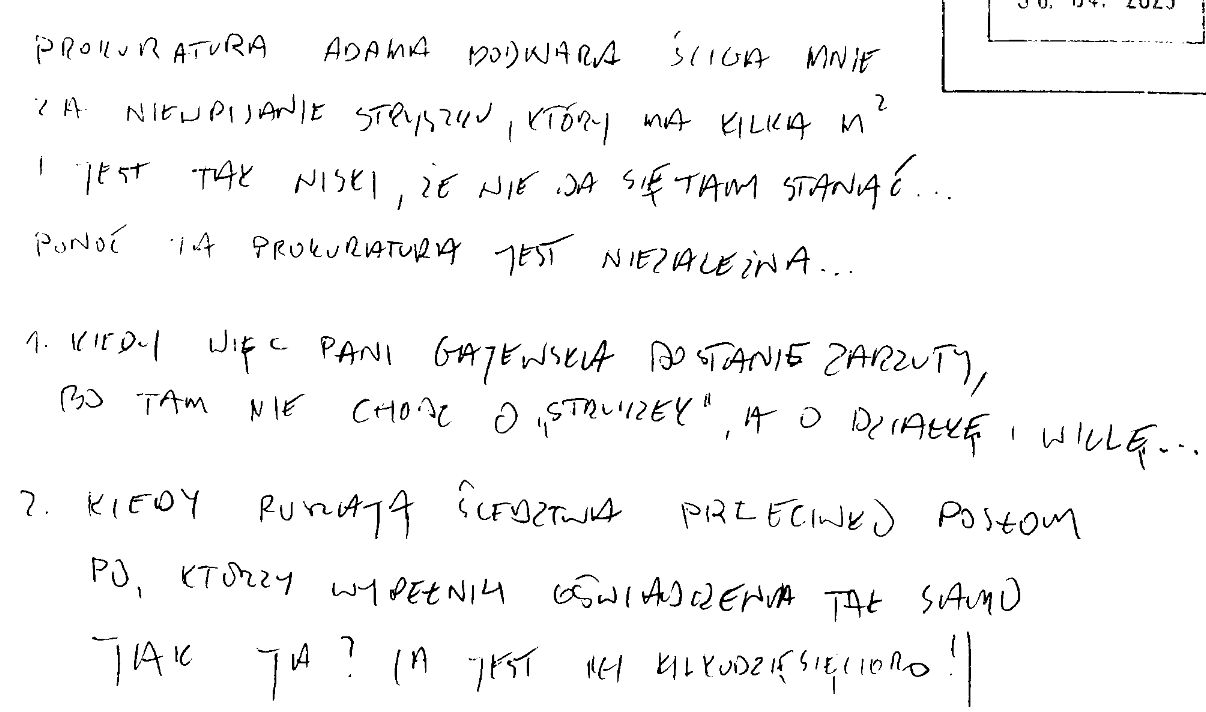 30. 04. 2025
PROKURATURA ADAMA BODNARA ŚCIGA MNIE
ZA NIEWPISANIE STRYSZKU, KTÓRY MA KILKA M²
I JEST TAK NISKI, ŻE NIE DA SIĘ TAM STANĄĆ...
PONOĆ TA PROKURATURA JEST NIEZALEŻNA...
1. KIEDY WIĘC PANI GAJEWSKA DOSTANIE ZARZUTY,
BO TAM NIE CHODZI O „STRYSZEK", A O DZIAŁKĘ I WILLĘ...
2. KIEDY RUSZAJĄ ŚLEDZTWA PRZECIWKO POSŁOM
PO, KTÓRZY WYPEŁNILI OŚWIADCZENIA TAK SAMO
JAK JA? (A JEST ICH KILKUDZIESIĘCIORO!)